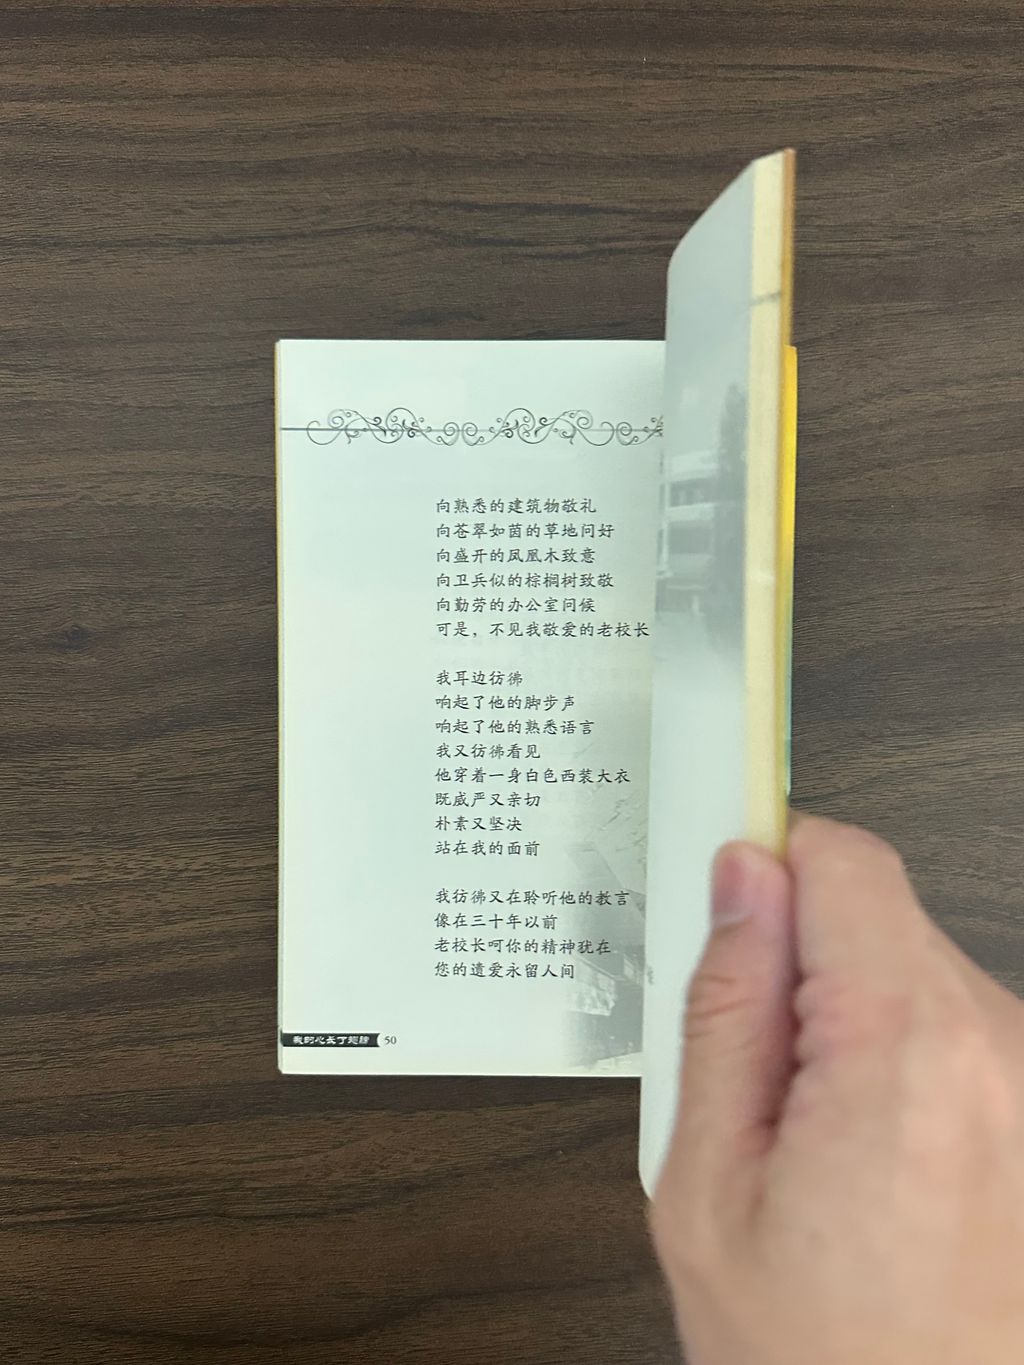 向熟悉的建筑物敬礼
向苍翠如茵的草地问好
向盛开的凤凰木致意
向卫兵似的棕榈树致敬
向勤劳的办公室问候
可是，不见我敬爱的老校长
我耳边彷彿
响起了他的脚步声
响起了他的熟悉语言
我又彷彿看见
他穿着一身白色西装大衣
既威严又亲切
朴素又坚决
站在我的面前
我彷彿又在聆听他的教言
像在三十年以前
老校长呵你的精神犹在
您的遗爱永留人间
我的心长了翅膀 50